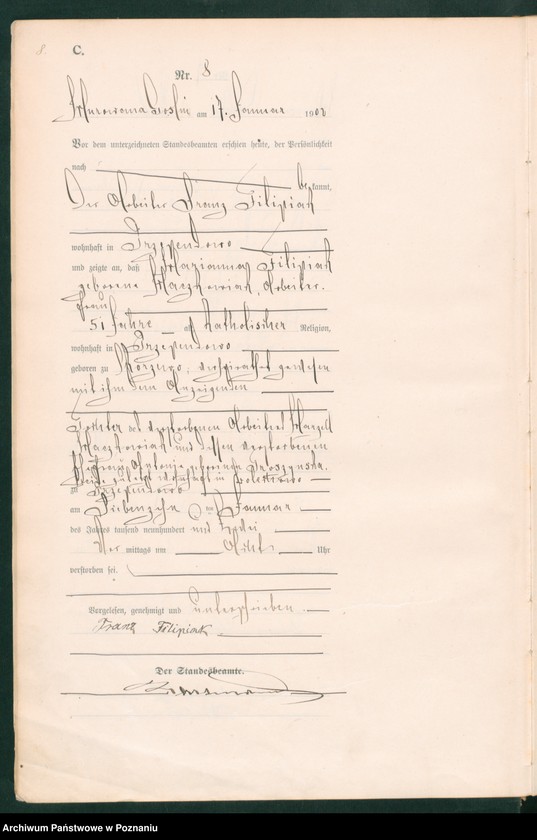 8.
C.
Nr. 8
Murowana Goslin am 17. Januar 1902
Vor dem unterzeichneten Standesbeamten erschien heute, der Persönlichkeit
nach
bekannt,
Der Arbeiter Franz Filipiak
wohnhaft in
und zeigte an, daß Marianna Filipiak
geborene Maczkowiak, Arbeiter-
frau
51 Jahre alt katholischer Religion,
wohnhaft in
geboren zu verheirathet gewesen
mit ihm dem Anzeigenden
Tochter des verstorbenen Arbeiters
Maczkowiak und dessen verstorbenen
Ehefrau Antonie geborenen
beide zuletzt wohnhaft in
zu
am Siebenzehn ten Januar
des Jahres tausend neunhundert und zwei
Vor mittags um Acht Uhr
verstorben sei.
Vorgelesen, genehmigt und unterschrieben.
Franz Filipiak
Der Standesbeamte.
Archiwum Państwowe w Poznaniu